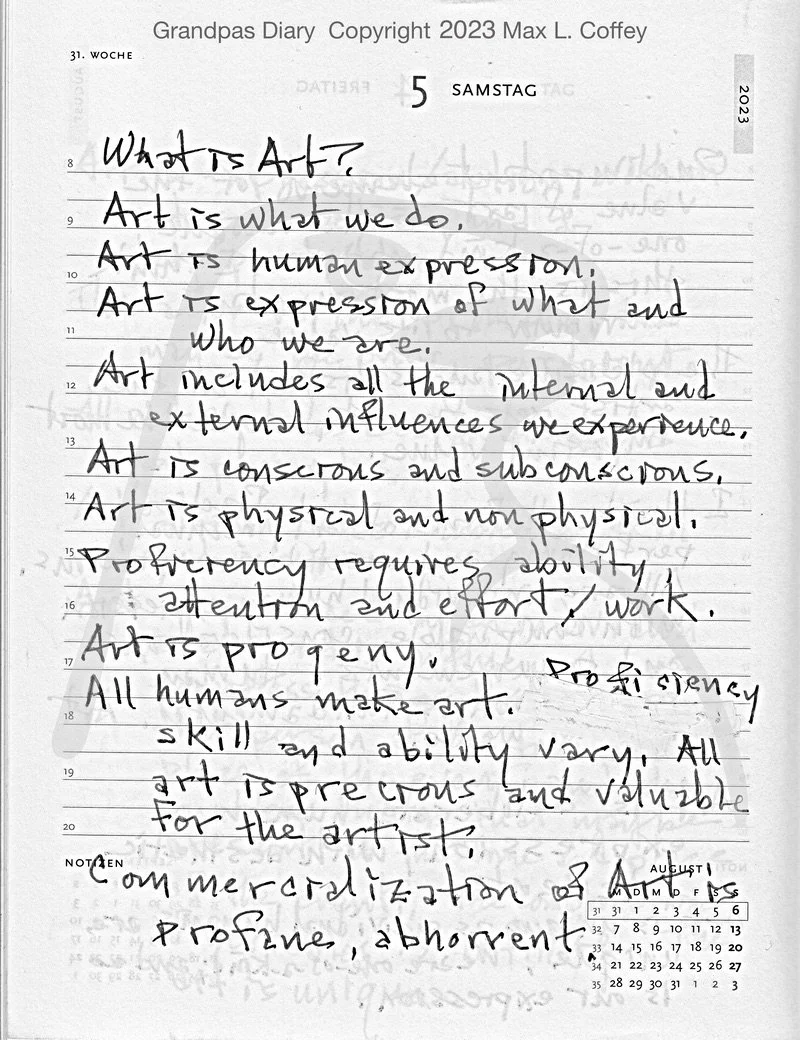 Grandpas Diary Copyright 2023 Max L. Coffey
31. WOCHE
5 SAMSTAG
2023
8 What is Art?
9 Art is what we do.
10 Art is human expression.
Art is expression of what and
11 who we are.
12 Art includes all the internal and
external influences we experience.
13 Art is conscious and subconscious.
14 Art is physical and non physical.
15 Proficiency requires ability,
16 attention and effort/work.
17 Art is progeny.
All humans make art. Proficiency
18 skill and ability vary. All
19 art is precious and valuable
20 for the artist.
NOTIZEN
Commercialization of Art is
profane, abhorrent
AUGUST
M D M D F S S
31 31 1 2 3 4 5 6
32 7 8 9 10 11 12 13
33 14 15 16 17 18 19 20
34 21 22 23 24 25 26 27
35 28 29 30 31 1 2 3